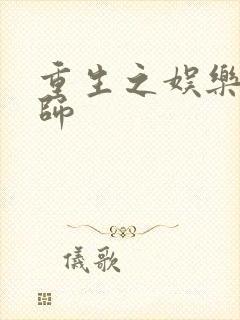 重生之娛樂
師
儀歌